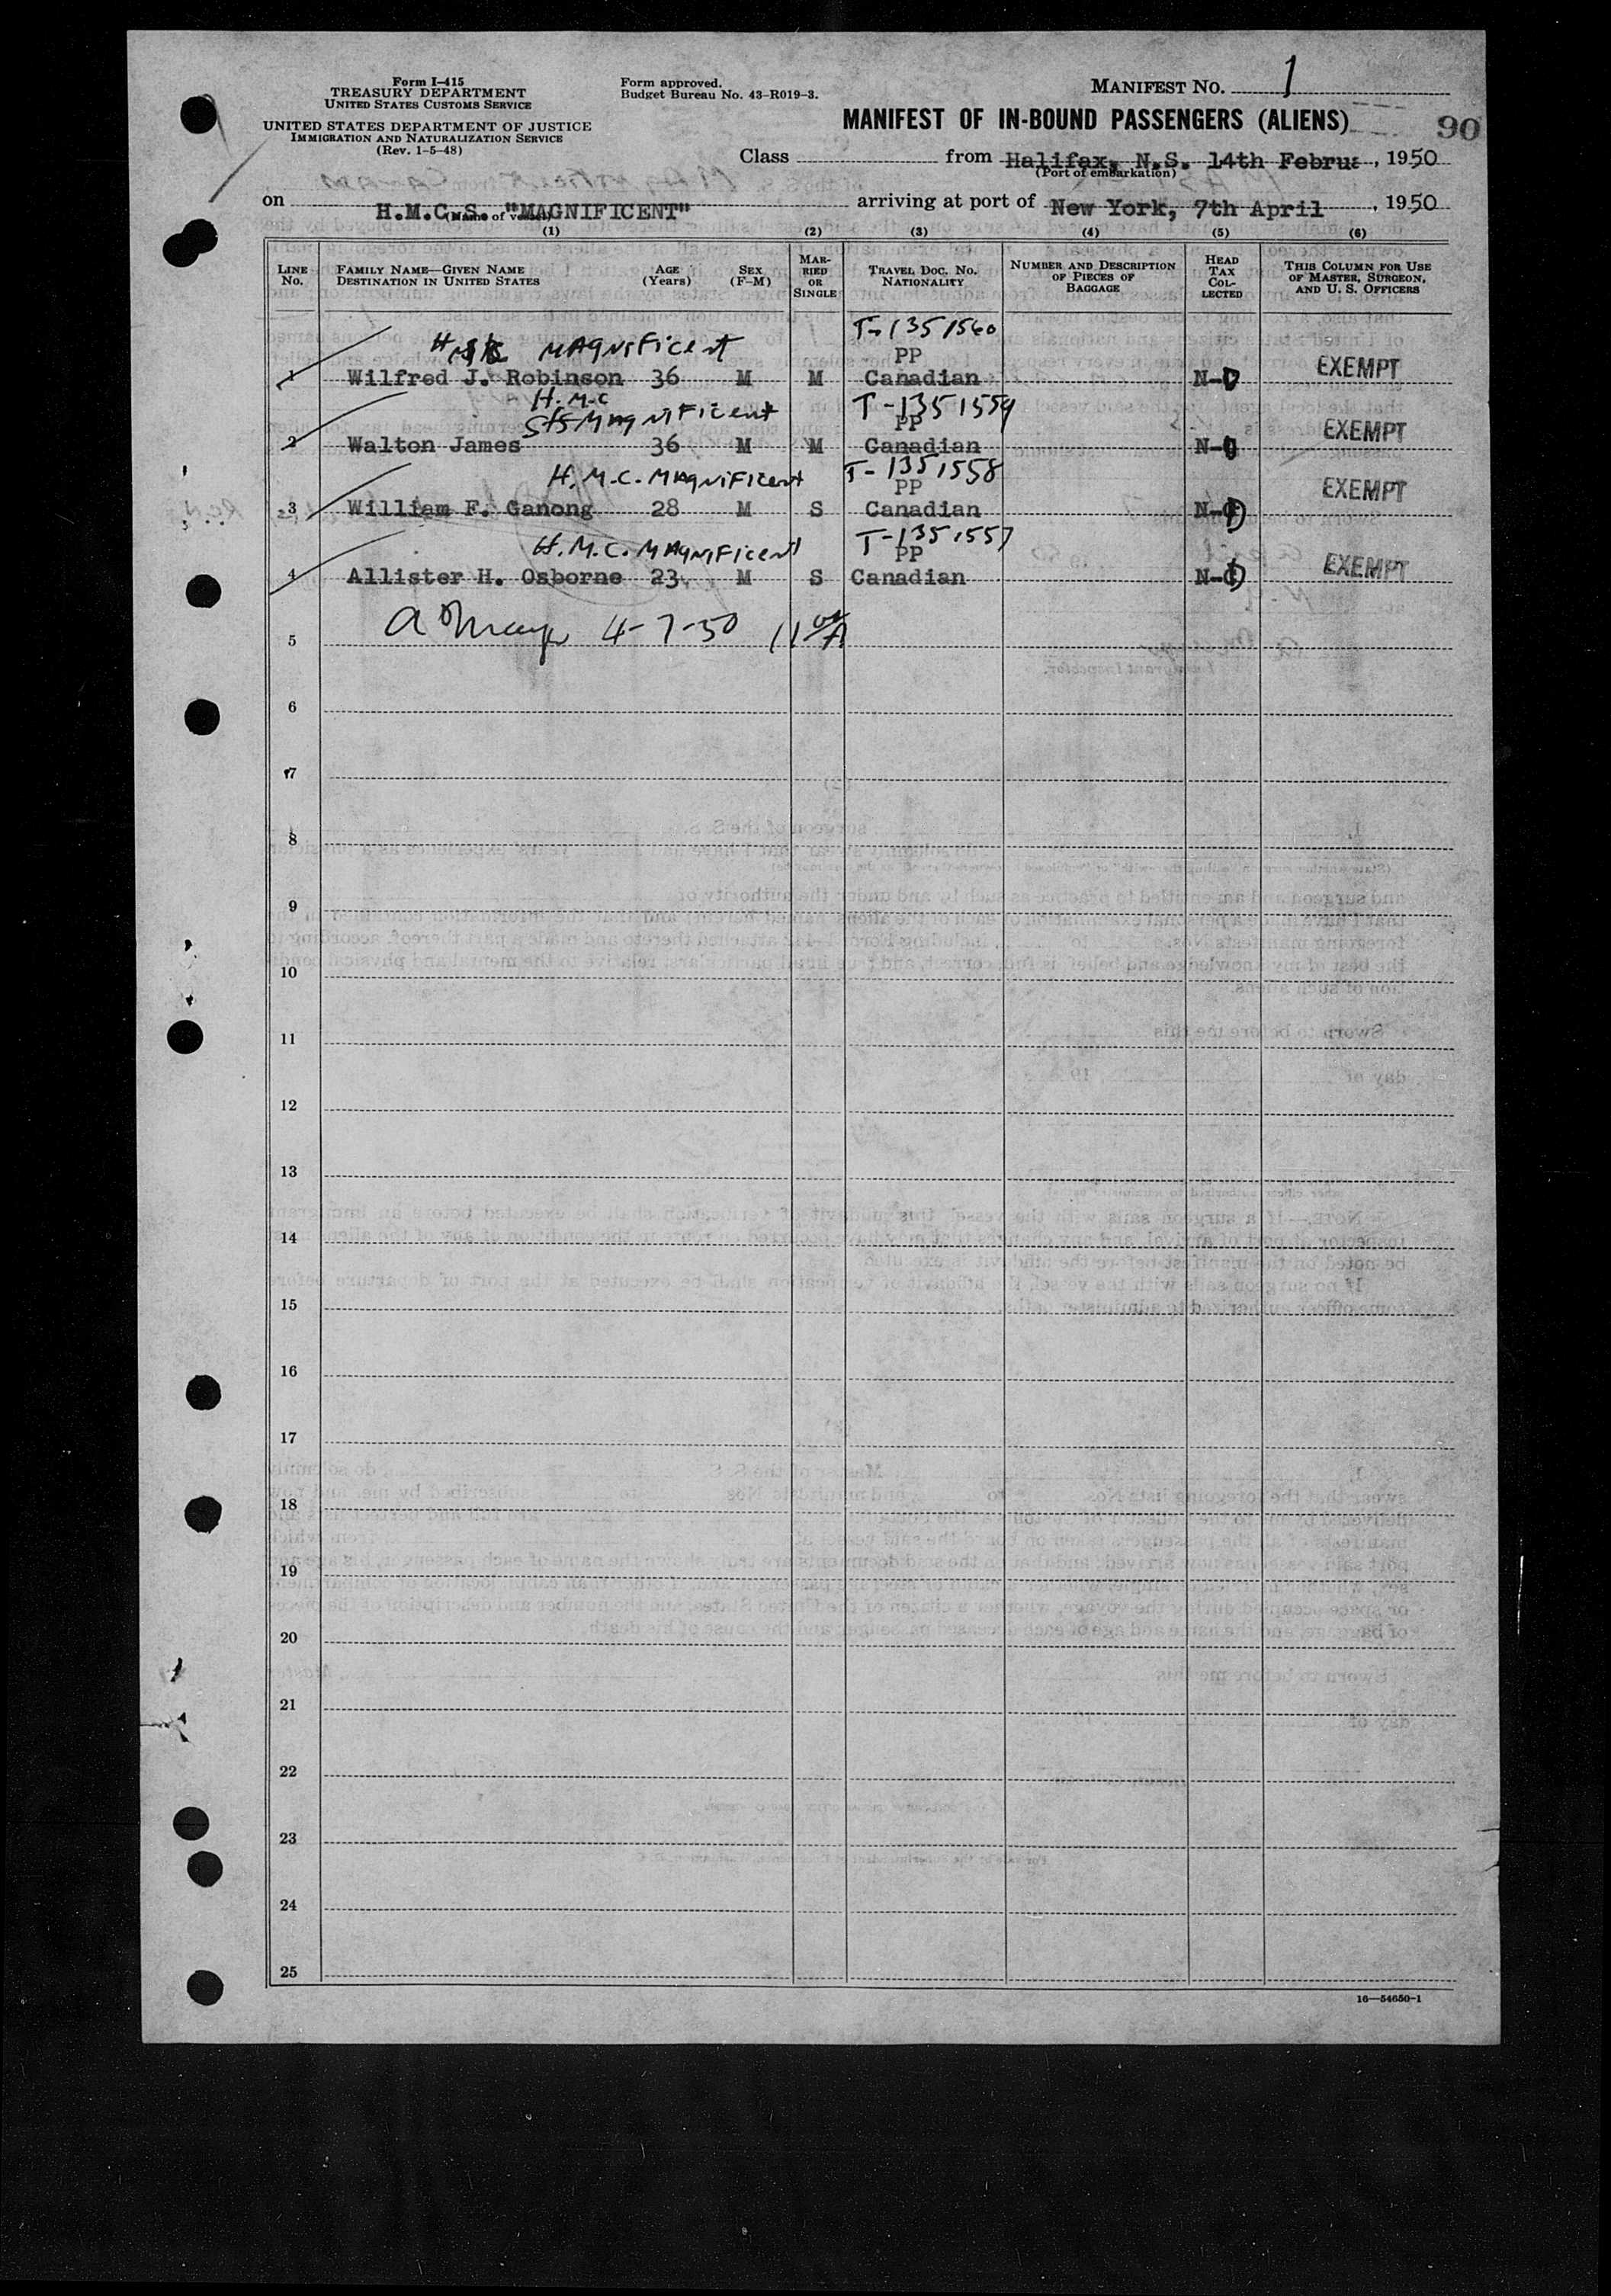 Form I-415
TREASURY DEPARTMENT
UNITED STATES CUSTOMS SERVICE
UNITED STATES DEPARTMENT OF JUSTICE
IMMIGRATION AND NATURALIZATION SERVICE
(Rev. 1-5-48)
Form approved.
Budget Bureau No. 43-R019-3.
MANIFEST No. 1
MANIFEST OF IN-BOUND PASSENGERS (ALIENS)
90
Class from Halifax, N.S. 14th Februa, 1950
(Port of embarkation)
on H.M.C.S. "MAGNIFICENT" arriving at port of New York, 7th April, 1950
(Name of vessel)
(1) (2) (3) (4) (5) (6)
LINE No. FAMILY NAME—GIVEN NAME DESTINATION IN UNITED STATES AGE (Years) SEX (F-M) MARRIED OR SINGLE TRAVEL DOC. No. NATIONALITY NUMBER AND DESCRIPTION OF PIECES OF BAGGAGE HEAD TAX COLLECTED THIS COLUMN FOR USE OF MASTER, SURGEON, AND U. S. OFFICERS
MAgnificent T-1351560
PP
1 Wilfred J. Robinson 36 M M Canadian EXEMPT
H.M.C
MAgnificent T-1351559
PP
2 Walton James 36 M M Canadian EXEMPT
H.M.C. MAgnificent T-1351558
PP
3 William F. Ganong 28 M S Canadian EXEMPT
H.M.C. MAgnificent T-1351557
PP
4 Allister H. Osborne 23 M S Canadian EXEMPT
4-7-50
5
6
7
8
9
10
11
12
13
14
15
16
17
18
19
20
21
22
23
24
25
16—54650-1